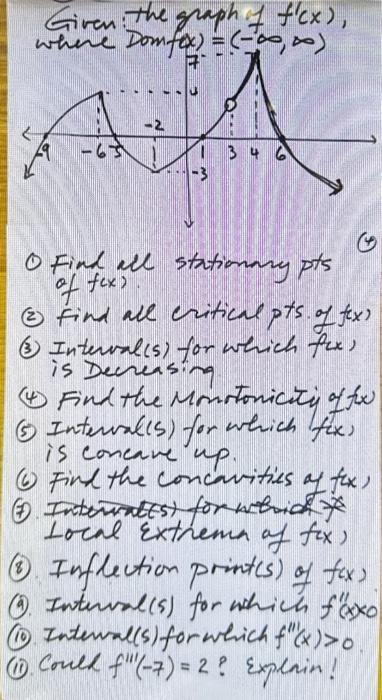 Given: the graph of f'(x),
where Domf(x) = (-∞, ∞)
7
4
-2
-9 -6 -5 1 3 4 6
-3
① Find all stationary pts
of f(x).
② Find all critical pts. of f(x)
③ Interval(s) for which f(x)
is Decreasing
④ Find the Monotonicity of f(x)
⑤ Interval(s) for which f(x)
is concave up.
⑥ Find the concavities of f(x)
⑦. Interval(s) for which f
Local Extrema of f(x)
⑧. Inflection print(s) of f(x)
⑨. Interval(s) for which f''(x)<0
⑩. Interval(s) for which f'''(x)>0
⑪. Could f'''(-7) = 2? Explain!